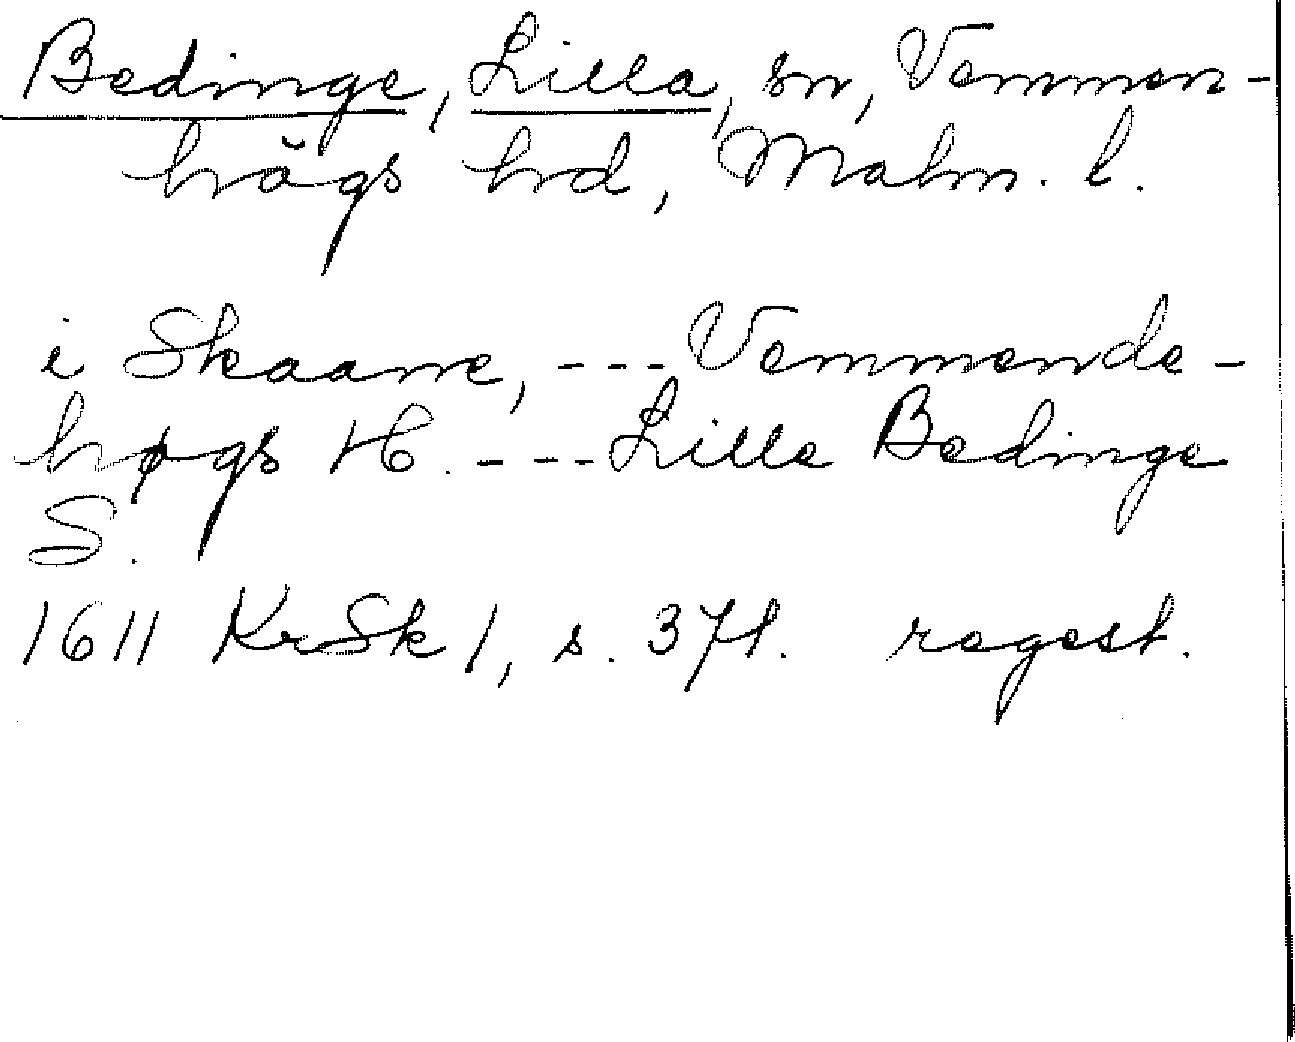 Bedinge, Lilla, sn, Vemmen-
högs hd, Malm. l.
i Skaane, --- Vemmende-
høgs H. --- Lille Bedinge
S.
1611 KrSk 1, s. 371. regest.